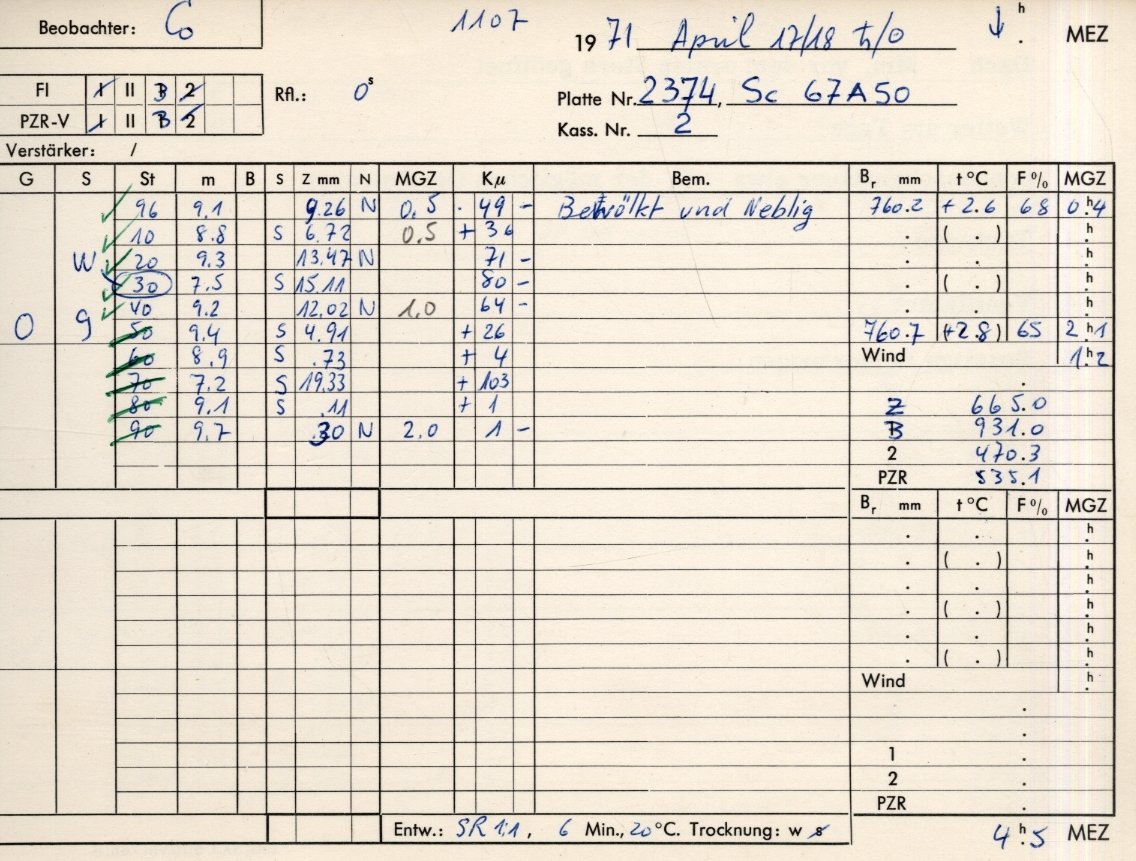 Beobachter: Co 1107 19 71 April 17/18 ♄/☉ ↓ h . MEZ
FI I II B 2 Rfl.: 0 s Platte Nr. 2374, Sc 67A50
PZR-V I II B 2 Kass. Nr. 2
Verstärker: /
G S St m B S Z mm N MGZ Kμ Bem. Br mm t °C F % MGZ
96 9.1 9.26 N 0.5 · 49 – Bewölkt und Neblig 760.2 + 2.6 68 0 h 4
10 8.8 S 6.72 0.5 + 36 . ( . ) h .
W 20 9.3 13.47 N 71 – . . h .
30 7.5 S 15.11 80 – . ( . ) h .
40 9.2 12.02 N 1.0 64 – . . h .
0 9 50 9.4 S 4.91 + 26 760.7 (+2.8) 65 2 h 1
60 8.9 S .73 + 4 Wind 1 h 2
70 7.2 S 19.33 + 103 .
80 9.1 S .11 + 1 Z 665.0
90 9.7 .30 N 2.0 1 – B 931.0
2 470.3
PZR 535.1
Br mm t °C F % MGZ
. . h .
. ( . ) h .
. . h .
. ( . ) h .
. . h .
. ( . ) h .
Wind h .
.
.
1 .
2 .
PZR .
Entw.: SR 1:1, 6 Min., 20 °C. Trocknung: w s 4 h 5 MEZ